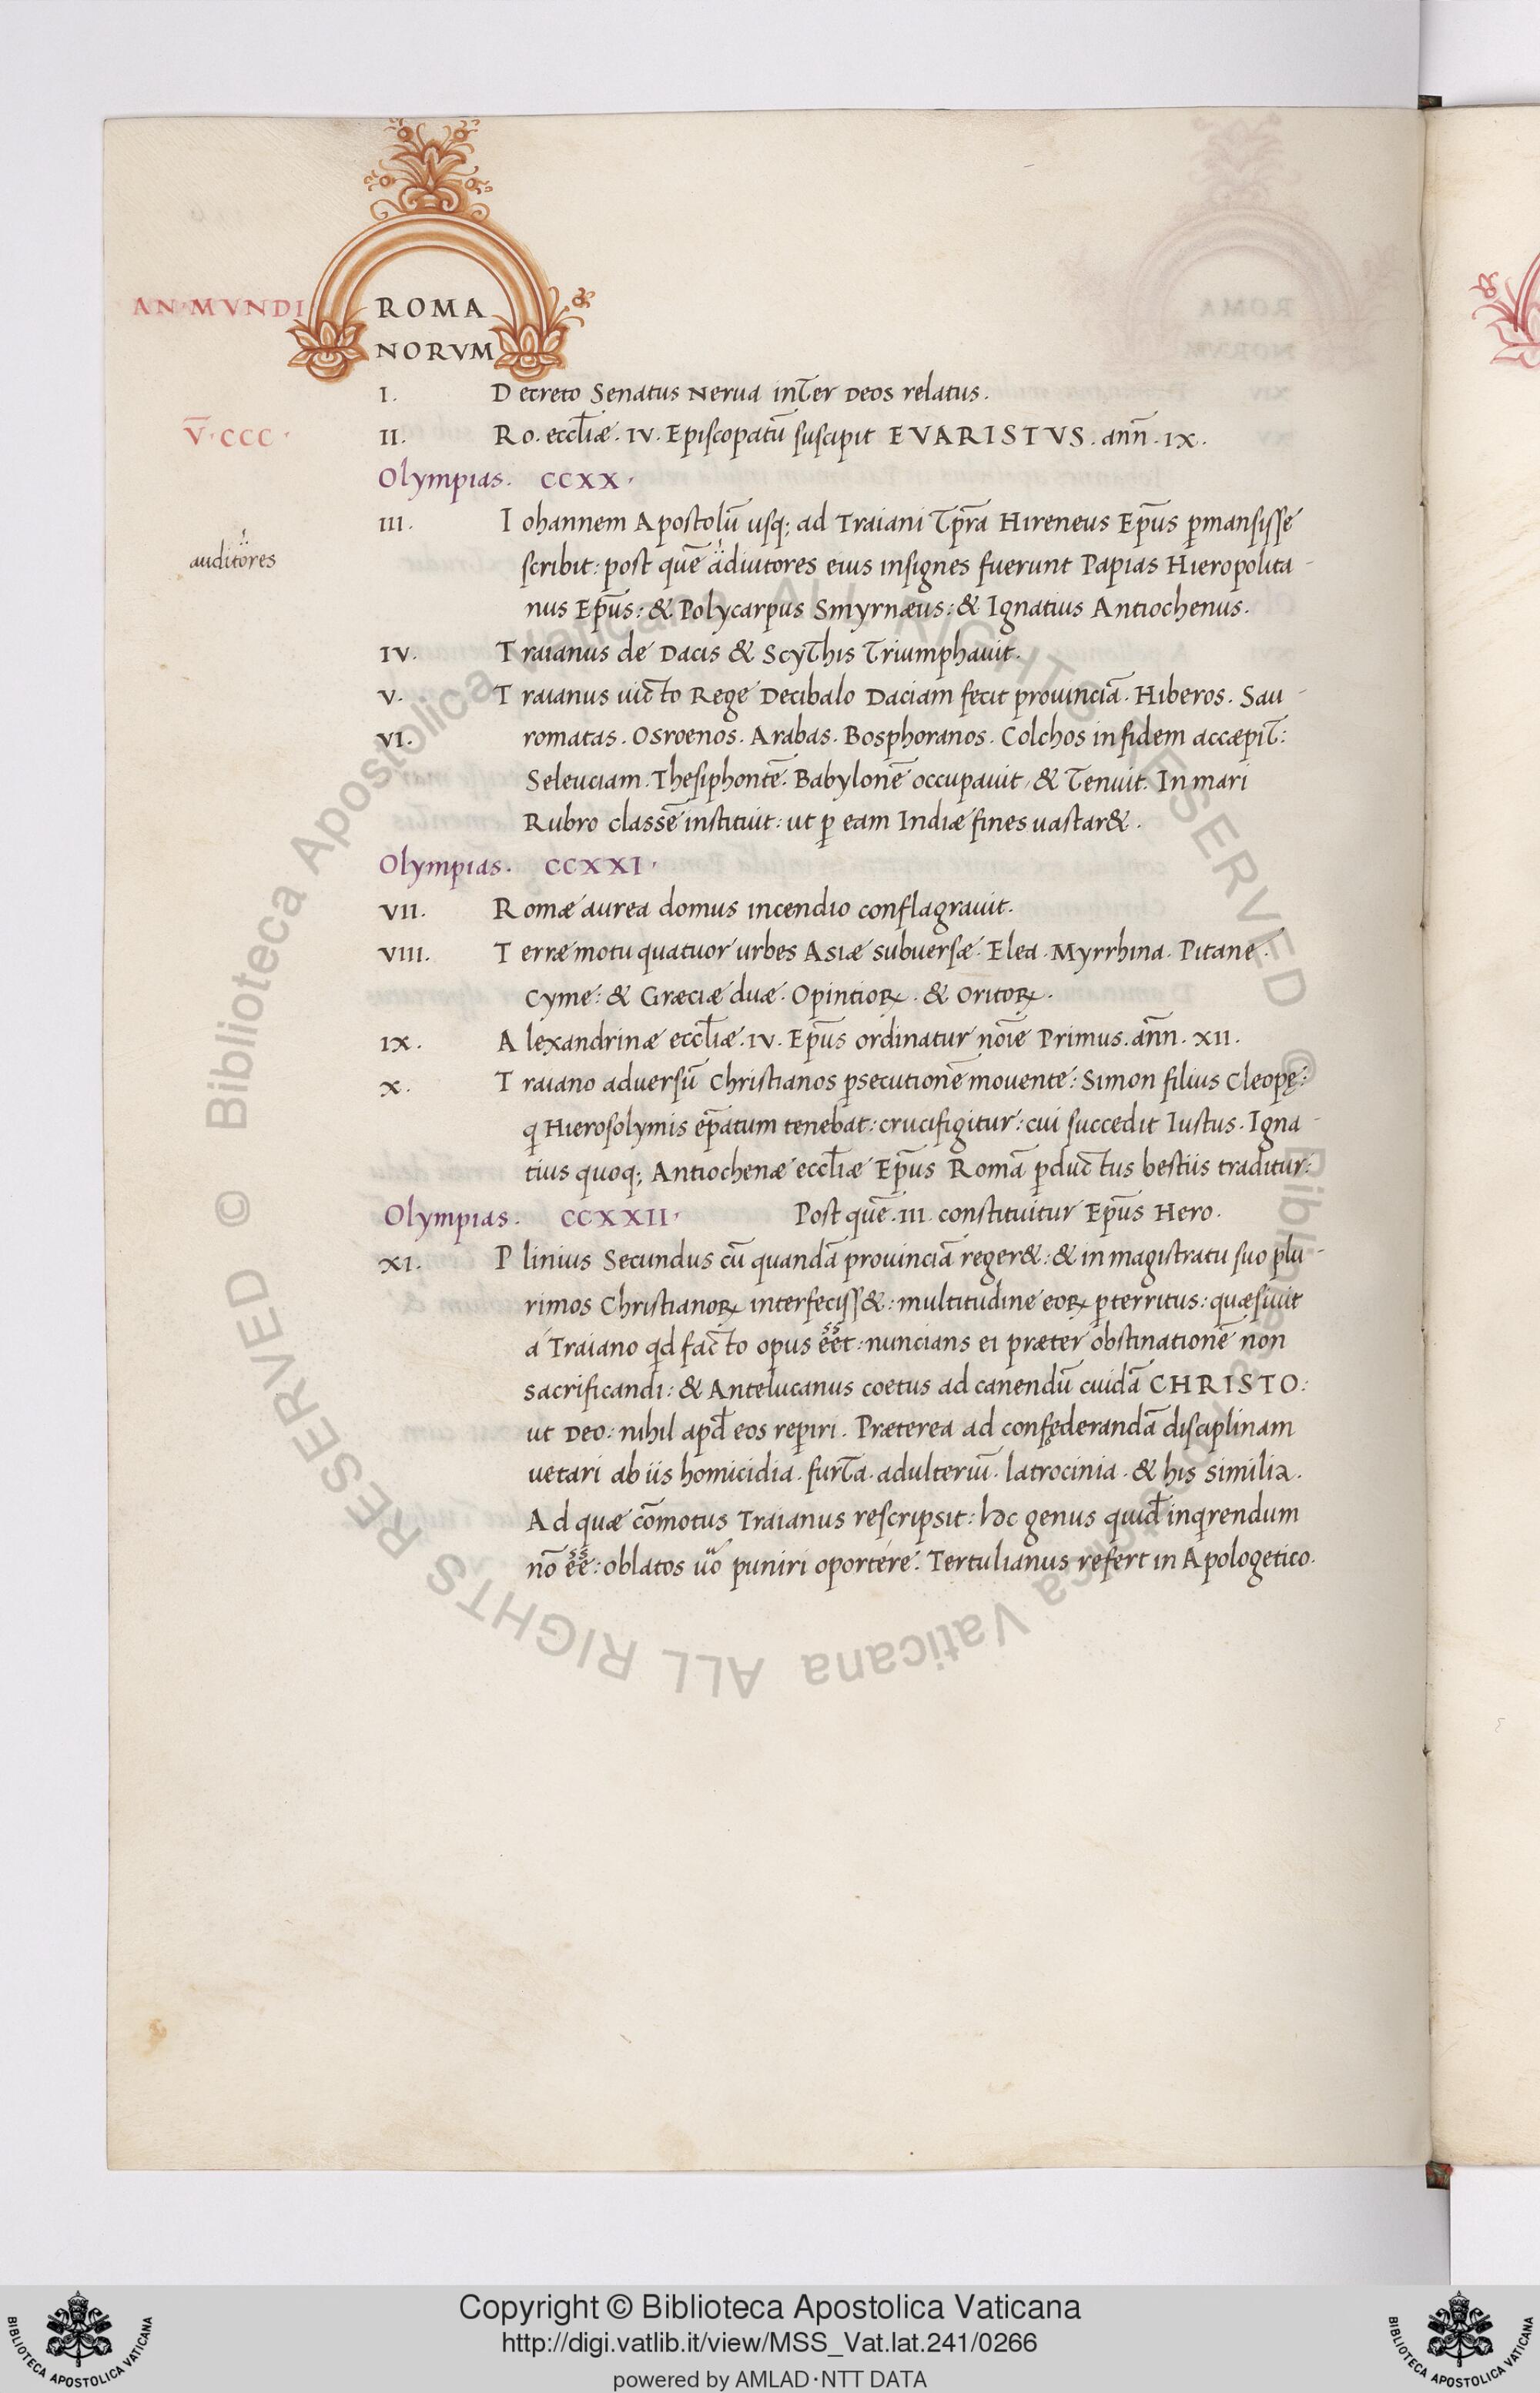 AN·MVNDI ROMA
NORVM
I. Decreto Senatus Nerua inter Deos relatus.
V̅·CCC· II. Ro. eccl̄iæ. IV. Episcopatū suscipit EVARISTVS. ann̄. IX.
Olympias. CCXX·
III. Iohannem Apostolū usq; ad Traiani tp̄ra Hireneus Ep̄us ꝑmansisse
auditores scribit: post quē adiutores eius insignes fuerunt Papias Hieropolita-
nus Ep̄us: & Polycarpus Smyrnæus: & Ignatius Antiochenus.
IV. Traianus de Dacis & Scythis triumphauit.
V. Traianus uicto Rege Decibalo Daciam fecit prouinciā. Hiberos. Sau-
VI. romatas. Osroenos. Arabas. Bosphoranos. Colchos in fidem accæpit:
Seleuciam. Thesiphontē. Babylonē occupauit, & tenuit. In mari
Rubro classē instituit: ut ꝑ eam Indiæ fines uastar&.
Olympias. CCXXI·
VII. Romæ aurea domus incendio conflagrauit.
VIII. Terræ motu quatuor urbes Asiæ subuersæ. Elea. Myrrhina. Pitane.
Cyme: & Græciæ duæ. Opintioꝝ. & Oritoꝝ.
IX. Alexandrinæ eccl̄iæ. IV. Ep̄us ordinatur noīe Primus. ann̄. XII.
X. Traiano aduersū Christianos ꝑsecutionē mouente: Simon filius Cleopę:
q Hierosolymis ep̄atum tenebat: crucifigitur: cui succedit Iustus. Igna-
tius quoq; Antiochenæ eccl̄iæ Ep̄us Romā ꝑductus bestiis traditur:
Olympias. CCXXII· Post quē. III. constituitur Ep̄us Hero.
XI. Plinius Secundus cū quandā prouinciā reger&: & in magistratu suo plu-
rimos Christianoꝝ interfeciss&: multitudine eoꝝ ꝑterritus: quæsiuit
a Traiano qd facto opus eēt: nuncians ei præter obstinationē non
sacrificandi: & Antelucanus coetus ad canendū cuidā CHRISTO:
ut Deo: nihil apd̄ eos reꝑiri. Præterea ad confęderandā disciplinam
uetari ab iis homicidia. furta. adulteriū. latrocinia. & his similia.
Ad quæ cōmotus Traianus rescripsit: hoc genus quid̄ inqrendum
nō eē: oblatos uo puniri oportere. Tertulianus refert in Apologetico.
Copyright © Biblioteca Apostolica Vaticana
http://digi.vatlib.it/view/MSS_Vat.lat.241/0266
powered by AMLAD·NTT DATA
BIBLIOTECA APOSTOLICA VATICANA
BIBLIOTECA APOSTOLICA VATICANA
© Biblioteca Apostolica Vaticana ALL RIGHTS RESERVED
© Biblioteca Apostolica Vaticana ALL RIGHTS RESERVED